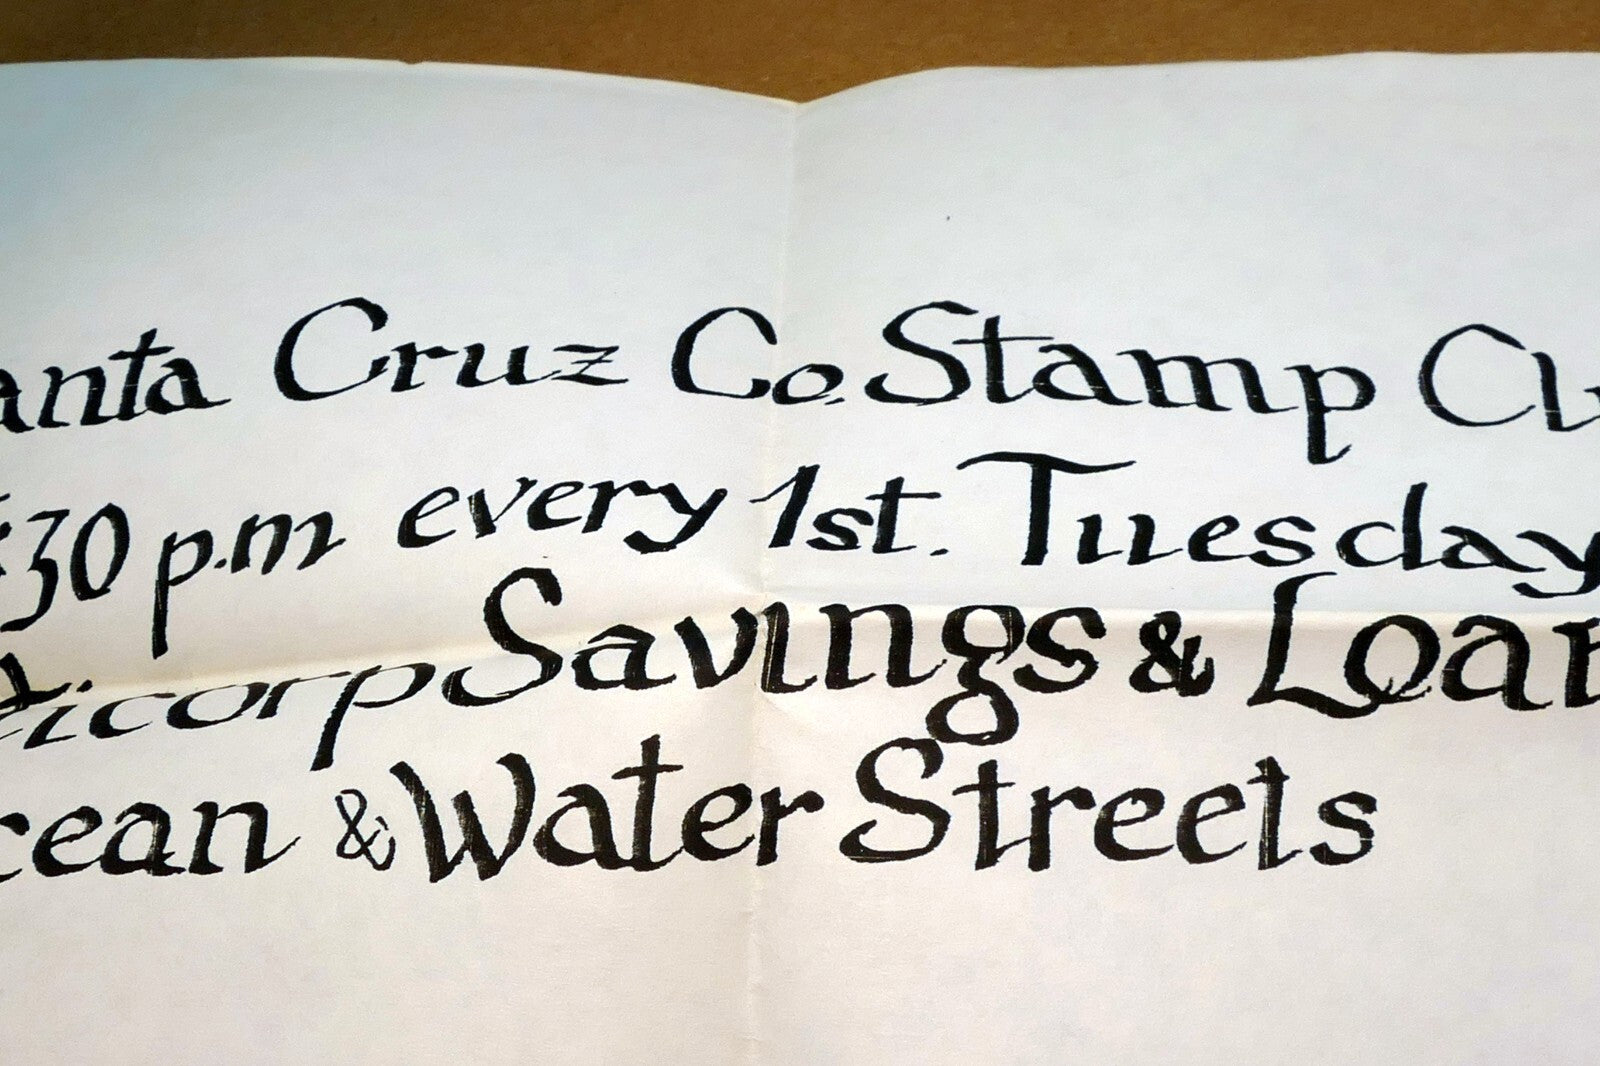 anta Cruz Co. Stamp Clu
:30 p.m every 1st. Tuesday
icorp Savings & Loan
cean & Water Streets